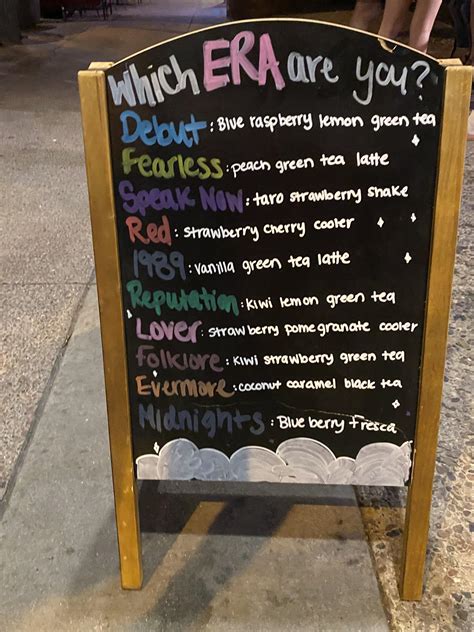 Which ERA are you?
Debut: Blue raspberry lemon green tea
Fearless: peach green tea latte
Speak Now: taro strawberry shake
Red: strawberry cherry cooler
1989: vanilla green tea latte
Reputation: kiwi lemon green tea
Lover: strawberry pomegranate cooler
Folklore: kiwi strawberry green tea
Evermore: coconut caramel black tea
Midnights: Blue berry fresca